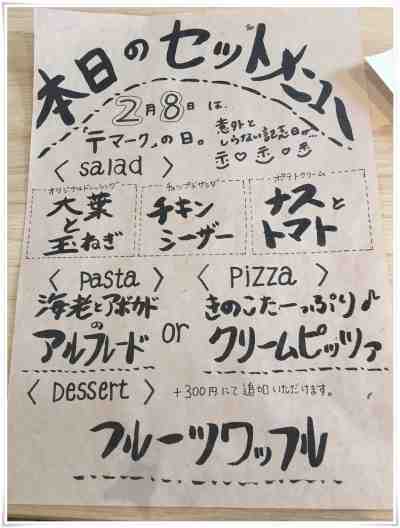 本日のセットメニュー
2月8日は、
〒マークの日。
意外と
しらない記念日が…
〒♡〒♡〒
〈 salad 〉
オリジナルドレッシング
大葉
と
玉ねぎ
チキン
シーザー
ポテトクリーム
ナスと
トマト
〈 pasta 〉
海老とアボカド
の
アルフレード
or
〈 Pizza 〉
きのこたーっぷり♪
クリームピッツァ
〈 Dessert 〉 +300円にて追加いただけます。
フルーツワッフル